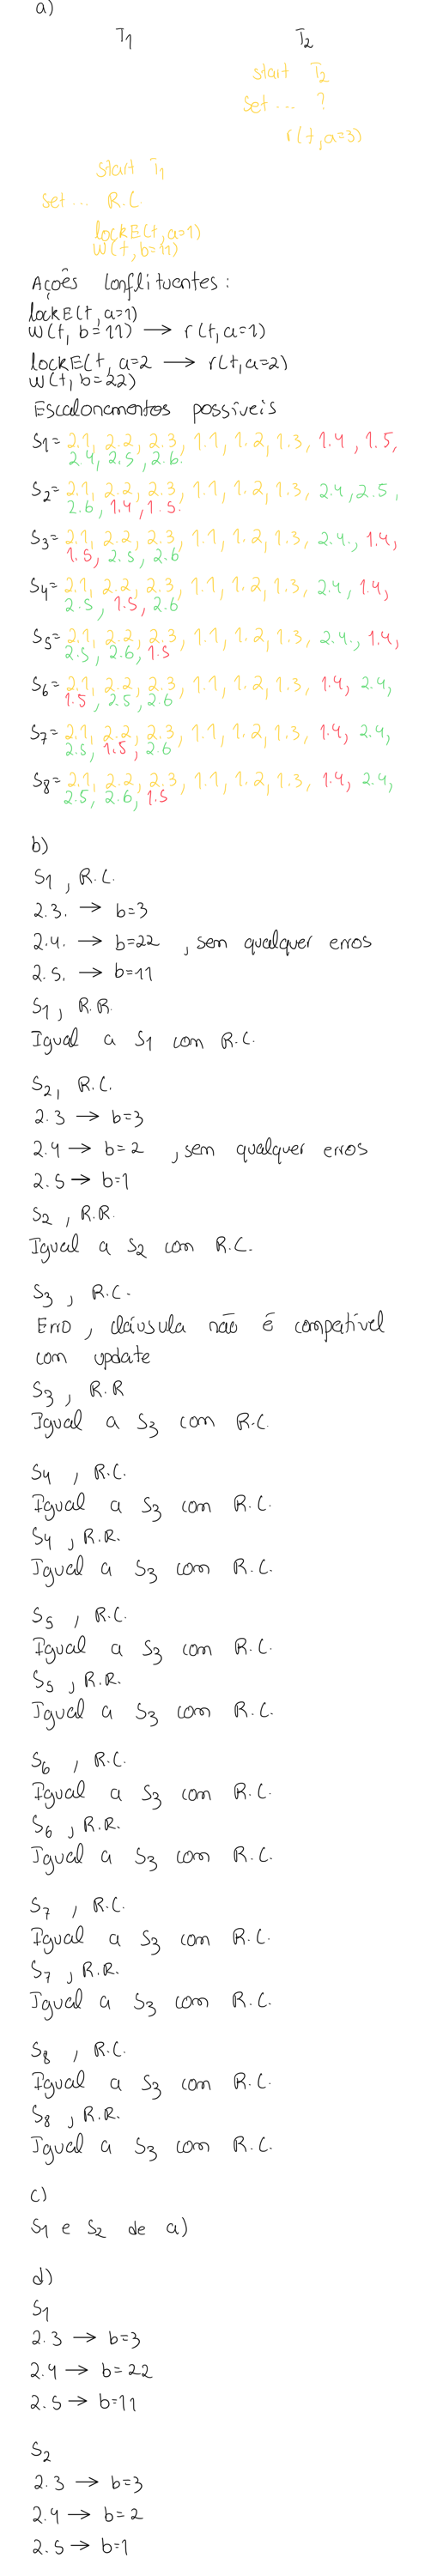 a)
T1 T2
start T2
Set ... ?
r(t, a=3)
start T1
Set ... R.C.
lockE(t, a=1)
w(t, b=11)
Ações Conflituentes:
lockE(t, a=1)
w(t, b=11) → r(t, a=1)
lockE(t, a=2 → r(t, a=2)
w(t, b=22)
Escalonamentos possíveis
S1= 2.1, 2.2, 2.3, 1.1, 1.2, 1.3, 1.4, 1.5,
2.4, 2.5, 2.6.
S2= 2.1, 2.2, 2.3, 1.1, 1.2, 1.3, 2.4, 2.5,
2.6, 1.4, 1.5.
S3= 2.1, 2.2, 2.3, 1.1, 1.2, 1.3, 2.4., 1.4,
1.5, 2.5, 2.6
S4= 2.1, 2.2, 2.3, 1.1, 1.2, 1.3, 2.4, 1.4,
2.5, 1.5, 2.6
S5= 2.1, 2.2, 2.3, 1.1, 1.2, 1.3, 2.4., 1.4,
2.5, 2.6, 1.5
S6= 2.1, 2.2, 2.3, 1.1, 1.2, 1.3, 1.4, 2.4,
1.5, 2.5, 2.6
S7= 2.1, 2.2, 2.3, 1.1, 1.2, 1.3, 1.4, 2.4,
2.5, 1.5, 2.6
S8= 2.1, 2.2, 2.3, 1.1, 1.2, 1.3, 1.4, 2.4,
2.5, 2.6, 1.5
b)
S1, R.C.
2.3. → b=3
2.4. → b=22 , sem qualquer erros
2.5. → b=11
S1, R.R.
Igual a S1 com R.C.
S2, R.C.
2.3 → b=3
2.4 → b=2 , sem qualquer erros
2.5 → b=1
S2, R.R.
Igual a S2 com R.C.
S3, R.C.
Erro, cláusula não é compatível
com update
S3, R.R
Igual a S3 com R.C.
S4, R.C.
Igual a S3 com R.C.
S4, R.R.
Igual a S3 com R.C.
S5, R.C.
Igual a S3 com R.C.
S5, R.R.
Igual a S3 com R.C.
S6, R.C.
Igual a S3 com R.C.
S6, R.R.
Igual a S3 com R.C.
S7, R.C.
Igual a S3 com R.C.
S7, R.R.
Igual a S3 com R.C.
S8, R.C.
Igual a S3 com R.C.
S8, R.R.
Igual a S3 com R.C.
c)
S1 e S2 de a)
d)
S1
2.3 → b=3
2.4 → b=22
2.5 → b=11
S2
2.3 → b=3
2.4 → b=2
2.5 → b=1